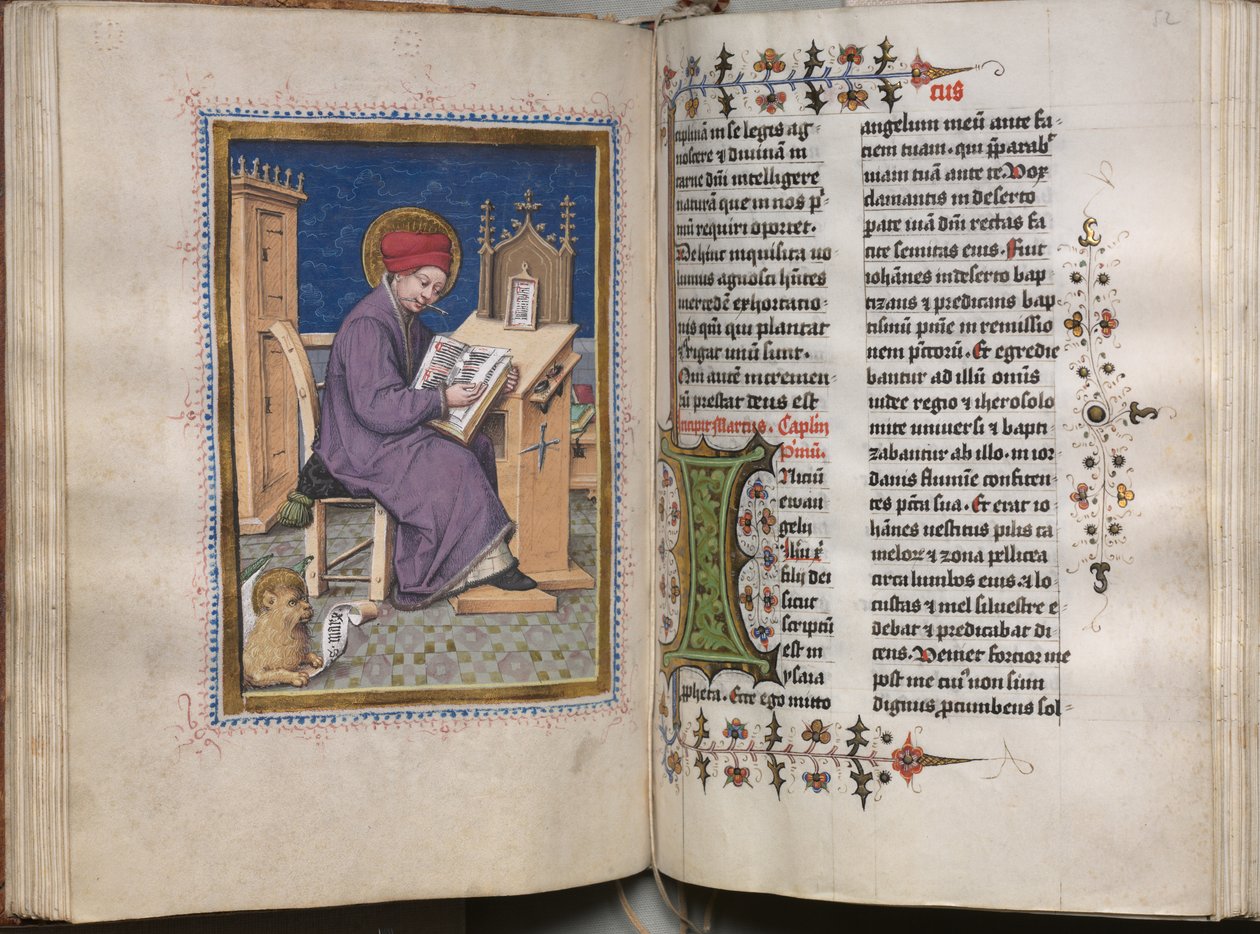 52
s. marc
cus
ciplinā in se legis ag-
noscere ⁊ diuinā in
carne dm̄ intelligere
naturā que in nos p͛-
mū requiri oportet.
Dehinc inquisita uo
lumus agnosci hn̄tes
mercedē exhortatio-
nis qm̄ qui plantat
⁊ rigat unū sunt.
Qui autē incremen-
tū prestat deus est
Incipit Marcus. Caplm̄
p͛mū.
Niciū
ewan
gelij
Ihu xp̄i
filij dei
sicut
scriptū
est in
ysaia
ꝓpheta. Ecce ego mitto
angelum meū ante fa-
ciem tuam. qui p̄parabᵗ
uiam tuā ante te. Vox
clamantis in deserto
parate uiā dm̄i rectas fa
cite semitas eius. Fuit
iohānes in deserto bap
tizans ⁊ predicans bap
tismū pn̄ie in remissio
nem p̄ctorū. Et egredie
bantur ad illū om̄is
iudee regio ⁊ iherosolo
mite uniuersi ⁊ bapti-
zabantur ab illo. in ior
danis flumīe confiten-
tes pctā sua. Et erat io
hānes uestitus pilis ca
melorꝝ ⁊ zona pellicea
circa lumbos eius. ⁊ lo
custas ⁊ mel siluestre e-
debat ⁊ predicabat di
cens. Veniet fortior me
post me cuiꝰ non sum
dignus ꝓcumbens sol-